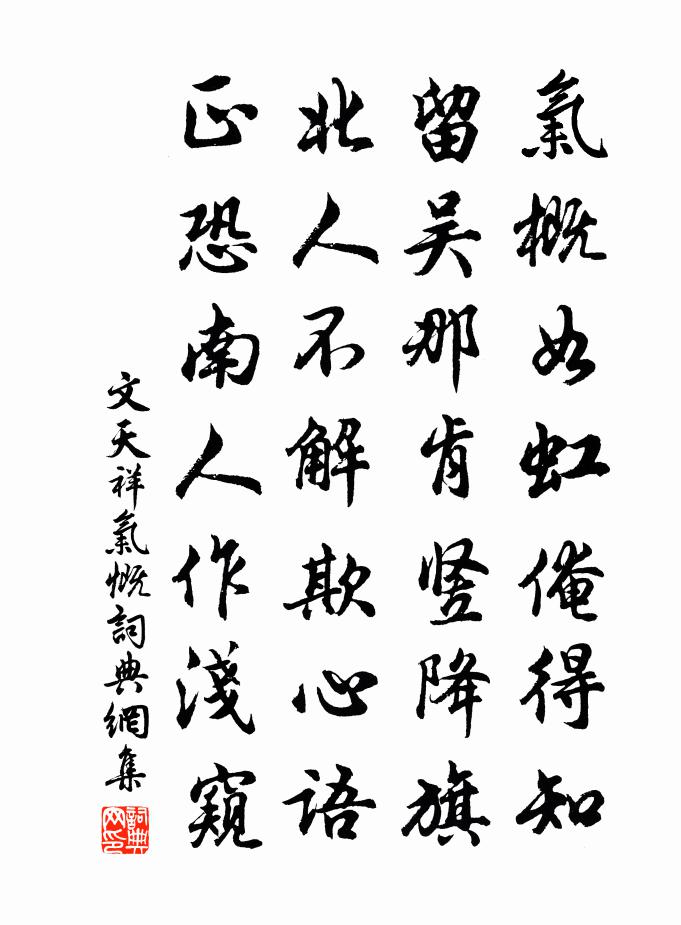 氣概如虹俺得知
留吴那肯竖降旗
北人不解欺心語
正恐南人作淺窺
文天祥氣慨詞典網集
詞典网印